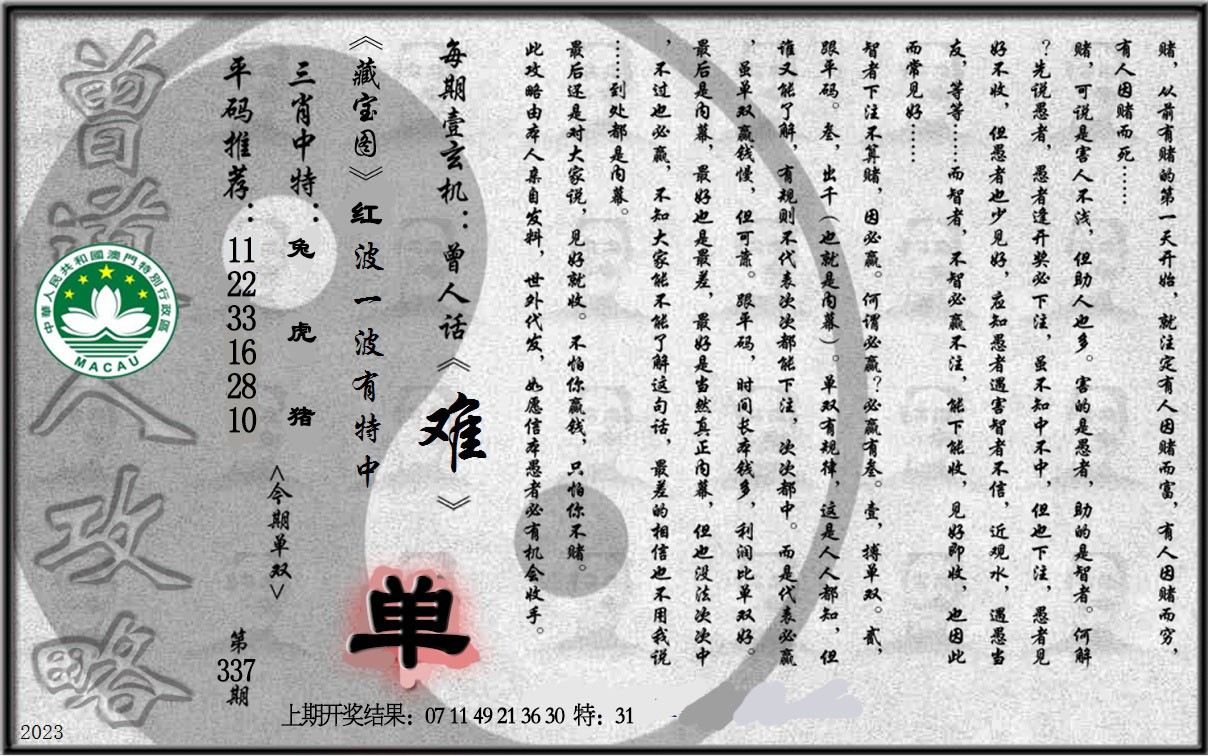 赌，从前有赌的第一天开始，就注定有人因赌而富，有人因赌而穷，
有人因赌而死……
赌，可说是害人不浅，但助人也多。害的是愚者，助的是智者。何解
？先说愚者，愚者逢开奖必下注，虽不知中不中，但也下注，愚者见
好不收，但愚者也少见好，应知愚者遇害智者不信，近观水，遇愚当
友，等等……而智者，不智必赢不注，能下能收，见好即收，也因此
而常见好……
智者下注不算赌，因必赢。何谓必赢？必赢有叁。壹，搏单双。贰，
跟平码。叁，出千（也就是内幕）。单双有规律，这是人人都知，但
谁又能了解，有规则不代表次次都能下注，次次都中。而是代表必赢
，虽单双赢钱慢，但可靠。跟平码，时间长本钱多，利润比单双好。
最后是内幕，最好也是最差，最好是当然真正内幕，但也没法次次中
，不过也必赢，不知大家能不能了解这句话，最差的相信也不用我说
……到处都是内幕。
最后还是对大家说，见好就收。不怕你赢钱，只怕你不赌。
此攻略由本人亲自发料，世外代发，如愿信本愚者必有机会收手。
每期壹玄机：曾人话《难》
《藏宝图》红波一波有特中
单
三肖中特：兔 虎 猪
<今期单双>
平码推荐：11 22 33 16 28 10
第337期
曾道人攻略
中華人民共和國澳門特別行政區
MACAU
上期开奖结果：07 11 49 21 36 30 特：31
2023